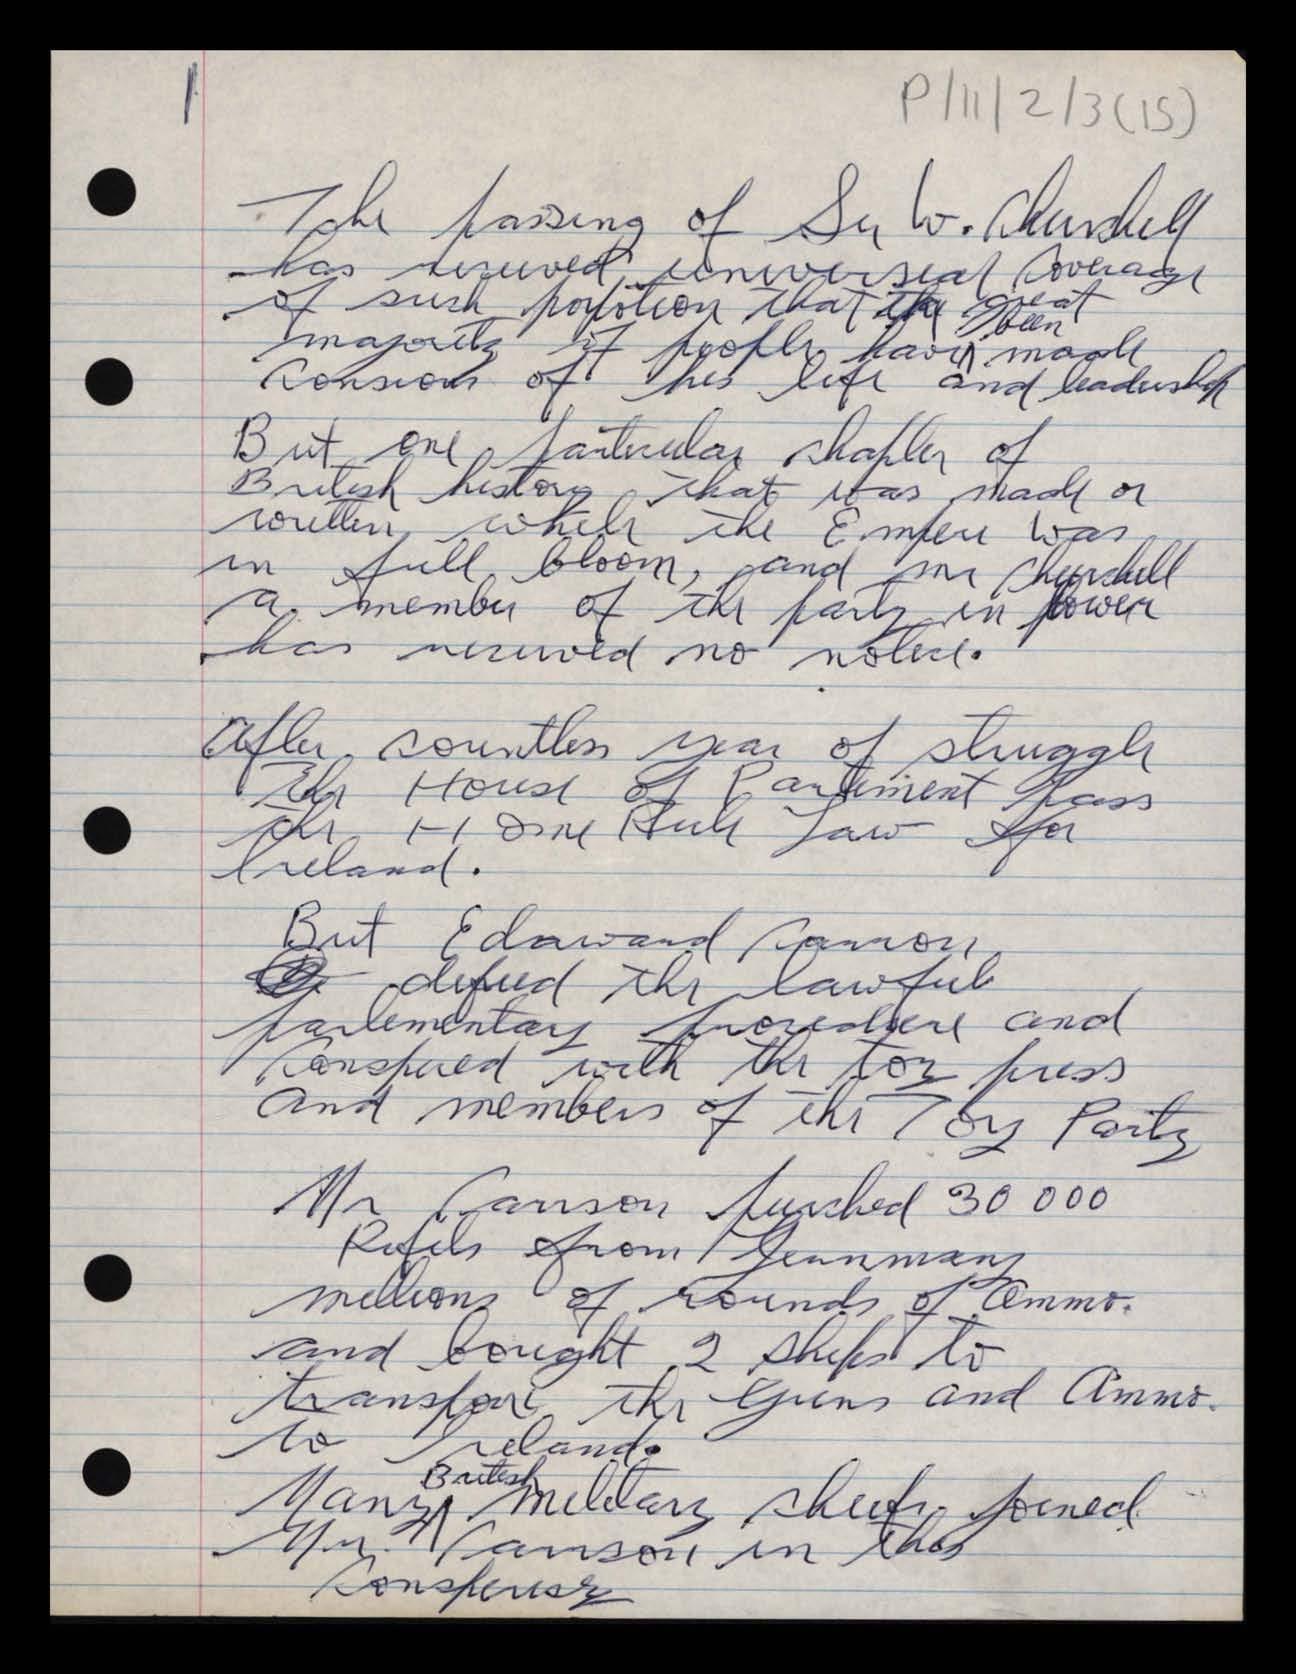 1
P/11/2/3(15)
The passing of Sir W. Churchell
has received universeal coverage
of such portion that the great
majority of people have been made
consious of his life and leadership
But one particular chapter of
British history that was made or
written while the Empire was
in full bloom, and mr Churchell
a member of the party in power
has received no notice.
After countless year of struggle
The House of Parliment pass
the Home Rule Law for
Ireland.
But Edaward Carson
defied the lawful
parlementary procedure and
conspired with the tory press
and members of the Tory Party
Mr Carson purched 30 000
Rifels from Germany
millions of rounds of Ammo.
and bought 2 ships to
transport the Guns and Ammo.
to Ireland.
Many British military chiefs joined
Mr. Carson in this
conspiricy